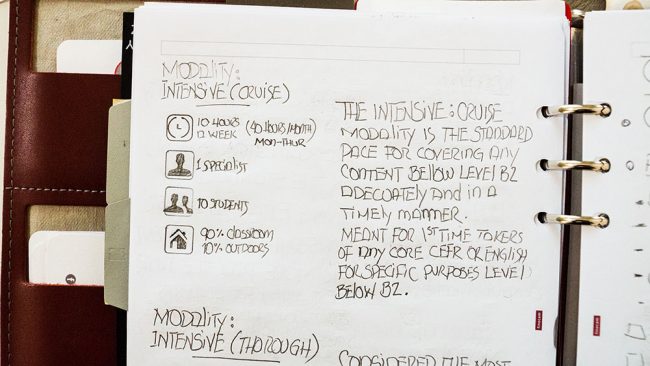 MODALITY:
INTENSIVE (CRUISE)
10 HOURS (40 HOURS/MONTH)
12 WEEK MON-THUR
1 SPECIALIST
10 STUDENTS
90% CLASSROOM
10% OUTDOORS
THE INTENSIVE: CRUISE
MODALITY IS THE STANDARD
PACE FOR COVERING ANY
CONTENT BELLOW LEVEL B2
ADECUATELY AND IN A
TIMELY MANNER.
MEANT FOR 1ST TIME TAKERS
OF ANY CORE CEFR OR ENGLISH
FOR SPECIFIC PURPOSES LEVEL
BELOW B2.
MODALITY:
INTENSIVE (THOROUGH)
CONSIDERED THE MOST